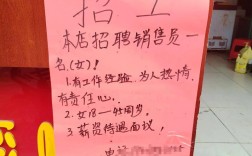 招工
本店招聘销售员一
名,(女)!
1.有工作经验,为人热情,
有责任心.
2.女18—45周岁.
3.薪资待遇面议!
电话